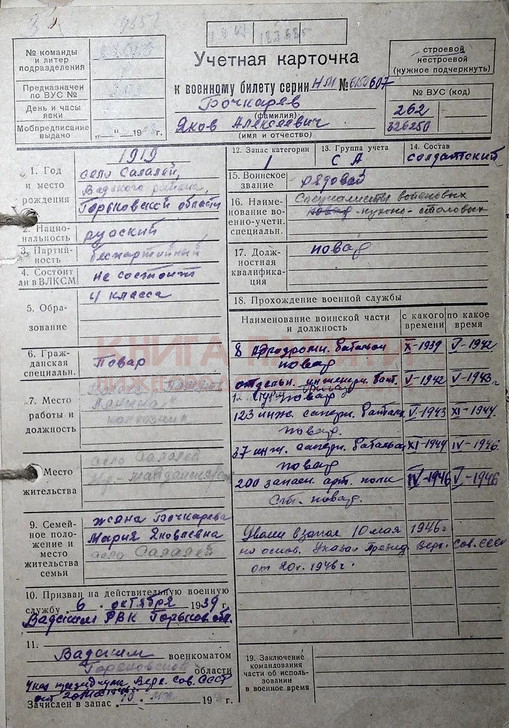 Учетная карточка
к военному билету серии НМ № 6150617
Бочкарев
(фамилия)
Яков Алексеевич
(имя и отчество)
№ команды
и литер
подразделения
Предназначен
по ВУС №
День и часы
явки
Мобпредписание
выдано
строевой
нестроевой
(нужное подчеркнуть)
№ ВУС (код)
262
326250
1. Год
и место
рождения
1919
село Салалей,
Вадского района,
Горьковской области
2. Нацио-
нальность
русский
3. Партий-
ность
беспартийный
4. Состоит
ли в ВЛКСМ
не состоит
5. Обра-
зование
4 класса
6. Граж-
данская
специальн.
Повар
7. Место
работы и
должность
Место
жительства
село Салалей
9. Семей-
ное поло-
жение и
место
жительства
семьи
жена Бочкарева
Мария Яковлевна
село Салалей
10. Призван на действительную военную
службу 6 октября 1939 г.
Вадским РВК Горьков. обл.
11.
Вадским военкоматом
Горьковской области
Указ президиума Верх. Сов. СССР
Зачислен в запас
12. Запас категории
1
13. Группа учета
СА
14. Состав
солдатский
15. Воинское
звание
рядовой
16. Наимено-
вание во-
енно-учетн.
специальн.
Специалисты войсковых
кухонь-столовых
17. Долж-
ностная
квалифика-
ция
повар
18. Прохождение военной службы
Наименование воинской части
и должность
с какого
времени
по какое
время
8 аэродромн. батальон X-1939 V-1942
повар
отдельн. инженерн. бат. V-1942 V-1943 г.
повар
123 инж. саперн. батальон V-1943 XI-1944
повар
37 инж. саперн. батальон XI-1944 IV-1946
повар
200 запасн. арт. полк IV-1946 V-1946
Ст. повар.
Уволен в запас 10 мая 1946 г.
на основ. Указа Презид. Верх. Сов. СССР
от 20 г. 1946 г.
19. Заключение
командования
части об исполь-
зовании
в военное время
КНИГА ПАМЯТИ